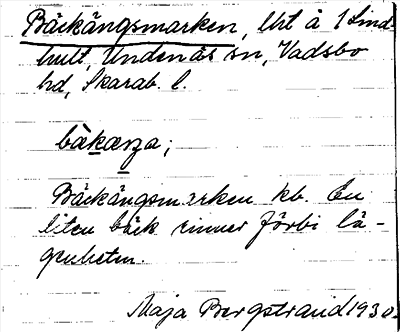 Bäckängsmarken, lht å 1 Lind-
hult, Undenäs sn, Vadsbo
hd, Skarab. l.
bàkæŋa;
Bäckängsmarken kb. En
liten bäck rinner förbi lä-
genheten.
Maja Bergstrand 1930.